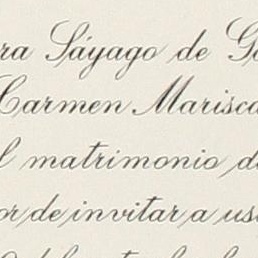 ra Sáyago de G
Carmen Marisca
l matrimonio d
or de invitar a us